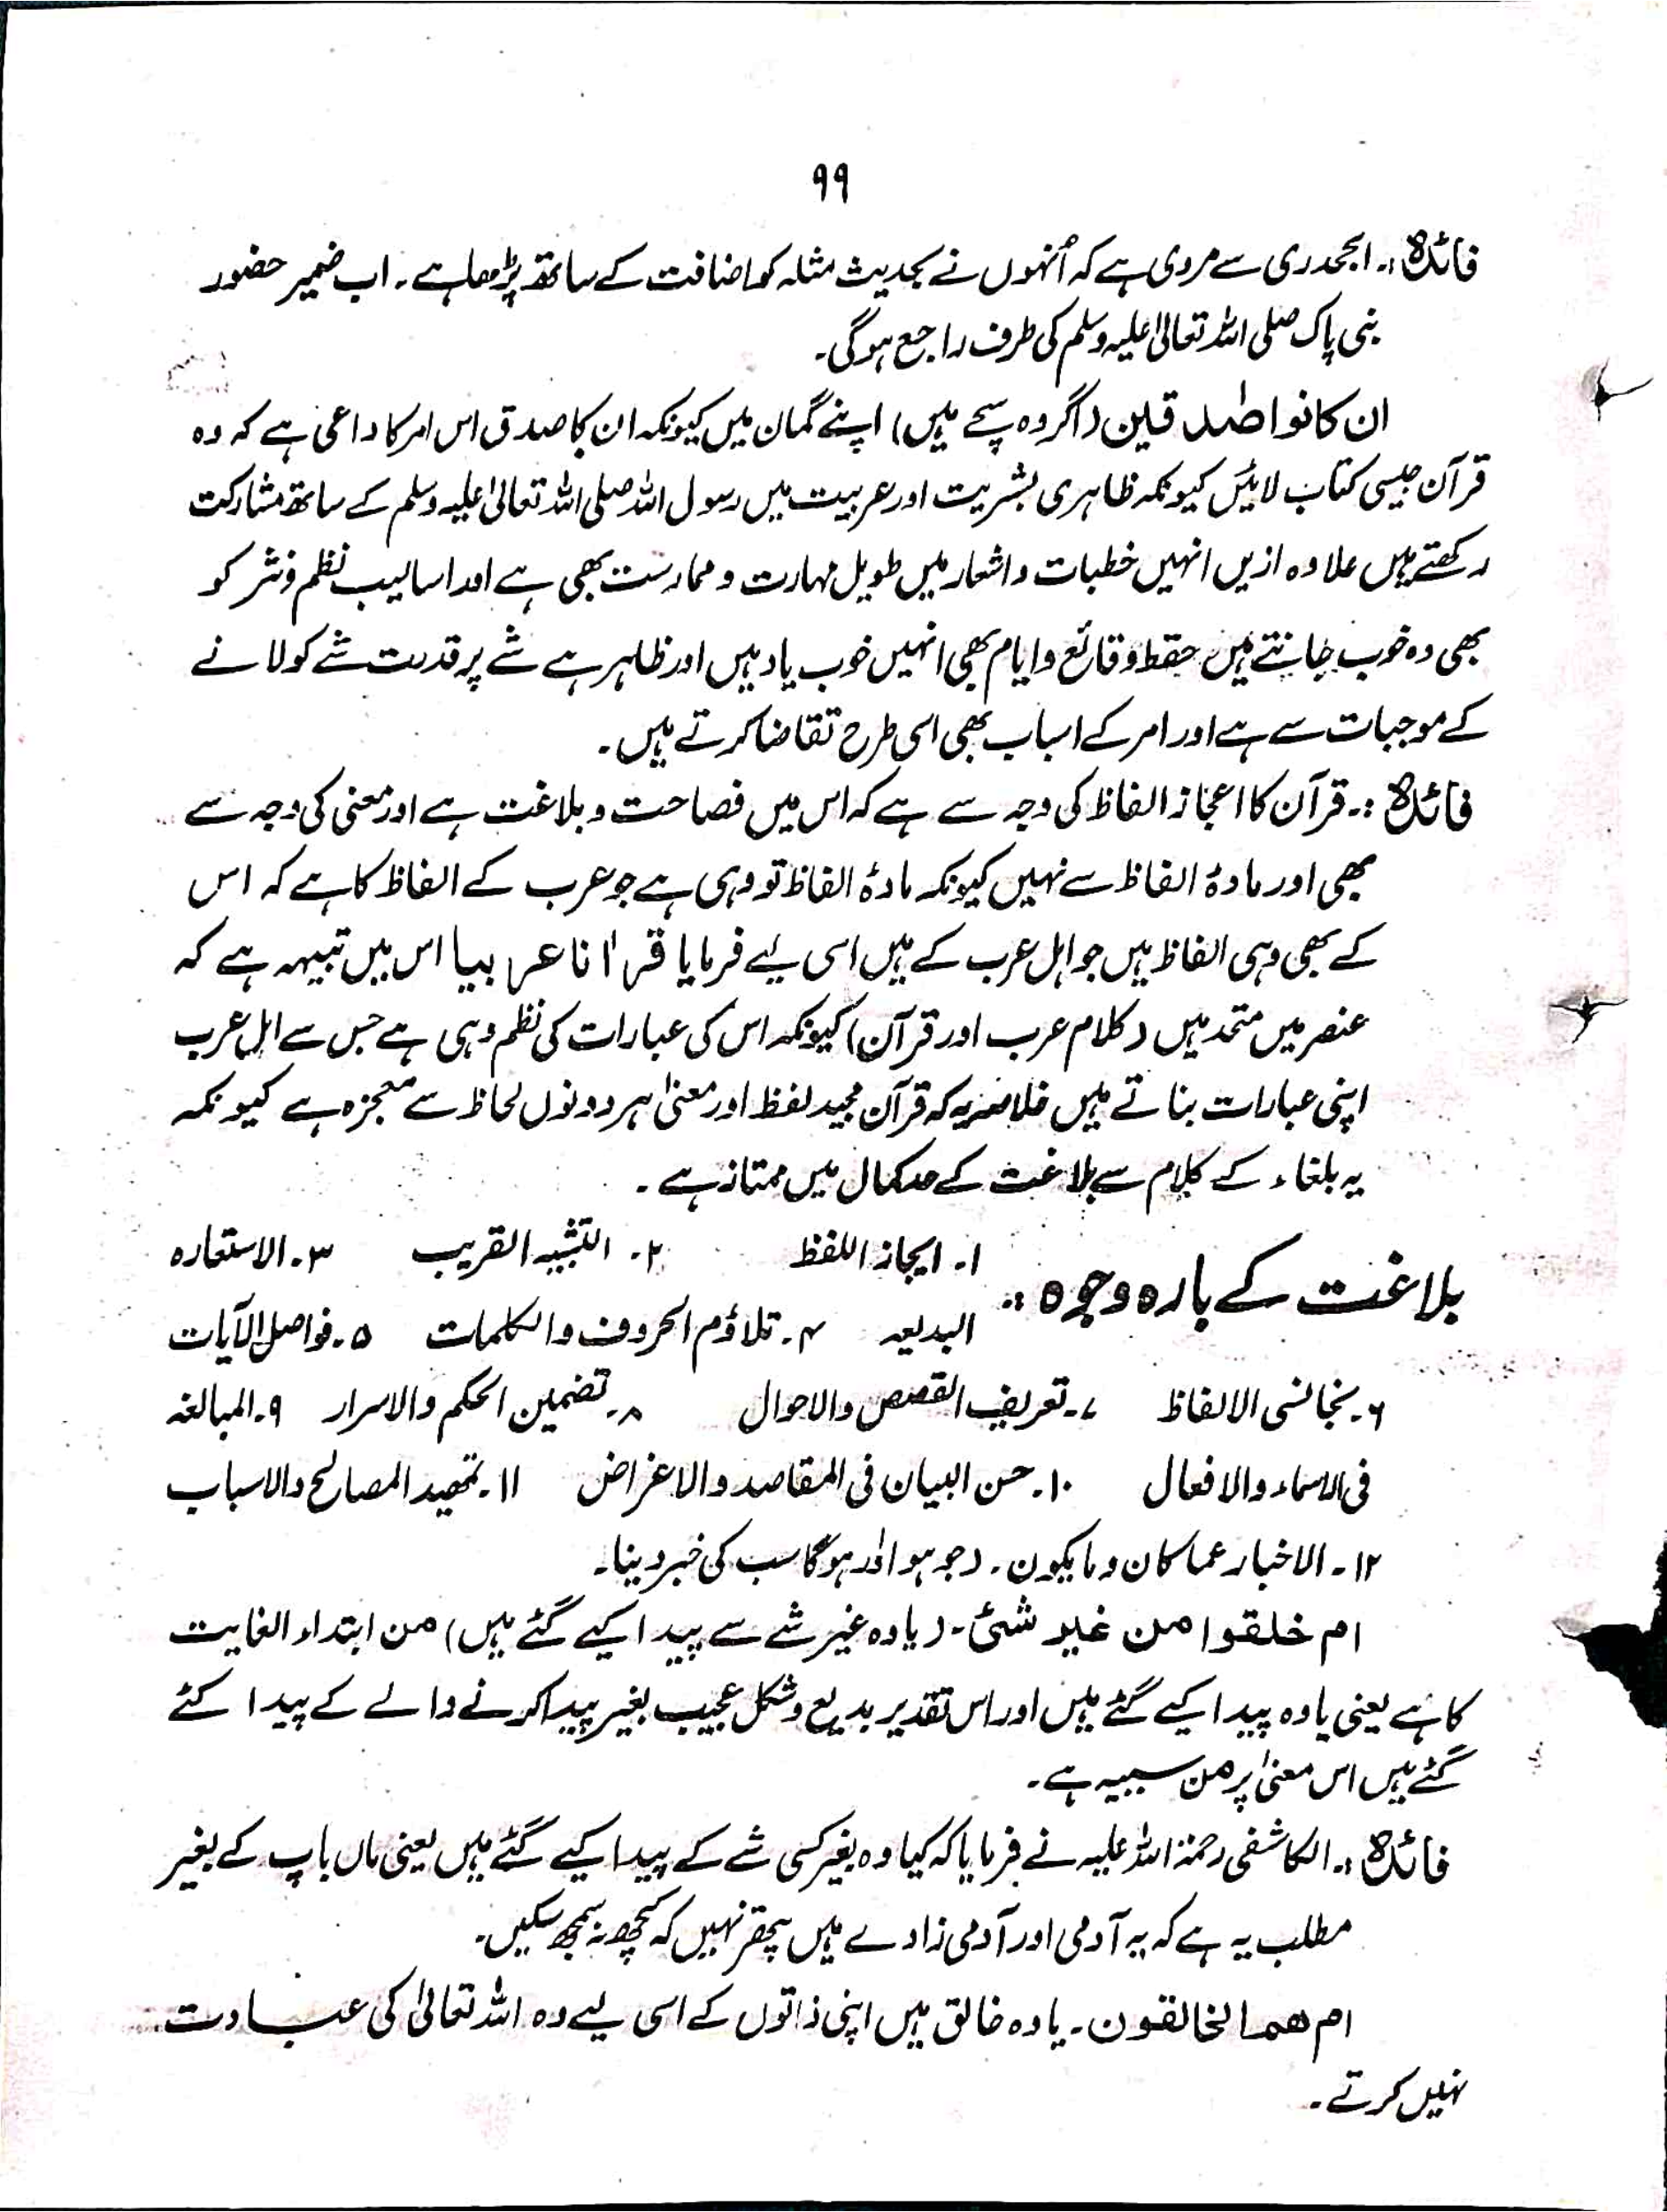 ۹۹
فائدہ :۔ الجحدری سے مروی ہے کہ اُنہوں نے بحدیث مثلہ کو اضافت کے ساتھ پڑھا ہے۔ اب ضمیر حضور
نبی پاک صلی اللہ تعالیٰ علیہ وسلم کی طرف راجع ہوگی۔
ان کانوا صٰدقین (اگر وہ سچے ہیں) اپنے گمان میں کیونکہ ان کا صدق اس امر کا داعی ہے کہ وہ
قرآن جیسی کتاب لائیں کیونکہ ظاہری بشریت اور عربیت میں رسول اللہ صلی اللہ تعالیٰ علیہ وسلم کے ساتھ مشارکت
رکھتے ہیں علاوہ ازیں انہیں خطبات و اشعار میں طویل مہارت و ممارست بھی ہے اور اسالیب نظم و نثر کو
بھی وہ خوب جانتے ہیں حفظ وقائع و ایام بھی انہیں خوب یاد ہیں اور ظاہر ہے شے پر قدرت شے کو لانے
کے موجبات سے ہے اور امر کے اسباب بھی اسی طرح تقاضا کرتے ہیں۔
فائدہ :۔ قرآن کا اعجاز الفاظ کی وجہ سے ہے کہ اس میں فصاحت و بلاغت ہے اور معنی کی وجہ سے
بھی اور مادۂ الفاظ سے نہیں کیونکہ مادۂ الفاظ تو وہی ہے جو عرب کے الفاظ کا ہے کہ اس
کے بھی وہی الفاظ ہیں جو اہل عرب کے ہیں اسی لیے فرمایا قراٰنا عربیا اس میں تبیہہ ہے کہ
عنصر میں متحد ہیں (کلام عرب اور قرآن) کیونکہ اس کی عبارات کی نظم وہی ہے جس سے اہل عرب
اپنی عبارات بناتے ہیں خلاصہ یہ کہ قرآن مجید لفظ اور معنیٰ ہر دونوں لحاظ سے معجزہ ہے کیونکہ
یہ بلغاء کے کلام سے بلاغت کے حد کمال میں ممتاز ہے۔
بلاغت کے بارہ وجوہ :۔ ۱۔ ایجاز اللفظ ۲۔ التشبیہ القریب ۳۔ الاستعارہ
البدیعہ ۴۔ تلاؤم الحروف والکلمات ۵۔ فواصل الآیات
۶۔ تجانس الالفاظ ۷۔ تعریف القصص والاحوال ۸۔ تضمین الحکم والاسرار ۹۔ المبالغہ
فی الاسماء والافعال ۱۰۔ حسن البیان فی المقاصد والاغراض ۱۱۔ تمھید المصالح والاسباب
۱۲۔ الاخبار عما کان وما یکون۔ (جو ہوا اور ہوگا سب کی خبر دینا۔
ام خلقوا من غیر شئ۔ (یا وہ غیر شے سے پیدا کیے گئے ہیں) من ابتداء الغایت
کا ہے یعنی یا وہ پیدا کیے گئے ہیں اور اس تقدیر بدیع و شکل عجیب بغیر پیدا کرنے والے کے پیدا کئے
گئے ہیں اس معنیٰ پر من سببیہ ہے۔
فائدہ :۔ الکاشفی رحمۃ اللہ علیہ نے فرمایا کہ کیا وہ بغیر کسی شے کے پیدا کیے گئے ہیں یعنی ماں باپ کے بغیر
مطلب یہ ہے کہ یہ آدمی اور آدمی زادے ہیں پتھر نہیں کہ کچھ نہ سمجھ سکیں۔
ام ھم الخالقون۔ یا وہ خالق ہیں اپنی ذاتوں کے اسی لیے وہ اللہ تعالیٰ کی عبادت
نہیں کرتے۔